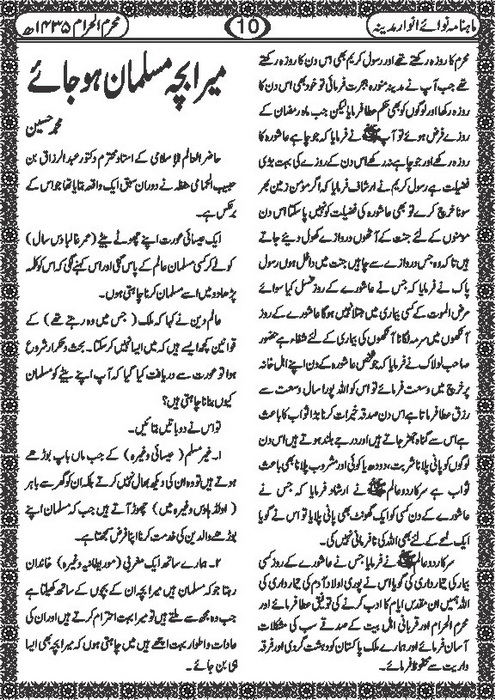 ماہنامہ نوائے انوار مدینہ
10
محرم الحرام ۱۴۳۵ھ
محرم کا روزہ رکھتے تھے اور رسول کریم بھی اس دن کا روزہ رکھتے
تھے جب آپ نے مدینہ منورہ ہجرت فرمائی تو خود بھی اس کا
روزہ رکھا اور لوگوں کو بھی حکم عطا فرمایا لیکن جب ماہ رمضان کے
روزے فرض ہوئے تو آپ ﷺ نے فرمایا کہ جو چاہے عاشورہ کا
روزہ رکھے اور جو چاہے نہ رکھے اس دن کے روزے کی بہت بڑی
فضیلت ہے رسول کریم نے ارشاد فرمایا کہ اگر مؤمن زمین بھر
سونا خرچ کرے تو بھی عاشورہ کی فضیلت کو نہیں پا سکتا اس دن
مؤمنوں کے لئے جنت کے آٹھوں دروازے کھول دیئے جاتے
ہیں تا کہ وہ جس دروازے سے چاہیں جنت میں داخل ہوں رسول
پاک نے فرمایا کہ جس نے عاشورے کے روز غسل کیا سوائے
مرض الموت کے کسی بیماری میں مبتلا نہیں ہوگا عاشورے کے روز
آنکھوں میں سرمہ لگانا آنکھوں کی بیماری کے لئے شفاء ہے حضور
صاحب لولاک نے فرمایا کہ جو شخص عاشورہ کے دن اپنے اہل خانہ
پر خرچ میں وسعت فرمائے تو اس کو اللہ پورا سال وسعت سے
رزق عطا فرماتا ہے اس دن صدقہ خیرات کرنا بڑا ثواب کا باعث
ہے اس سے گناہ جھڑ جاتے ہیں اور درجے بلند ہوتے ہیں اس دن
لوگوں کو پانی پلانا شربت، دودھ یا کوئی اور مشروب پلانا بھی باعث
ثواب ہے سرکار دو عالم ﷺ نے ارشاد فرمایا کہ جس نے
عاشورے کے دن کسی کو ایک گھونٹ بھی پانی پلایا تو اس نے گویا
ایک لمحے کے لئے بھی اللہ کی نافرمانی نہیں کی۔
سرکار دو عالم ﷺ نے فرمایا جس نے عاشورے کے روز کسی
بیمار کی تیمارداری کی گویا اس نے پوری اولاد آدم کی تیمارداری کی
اللہ ہمیں ان مقدس ایام کا ادب کرنے کی توفیق عطا فرمائے اور
محرم الحرام اور قربانی اہل بیت کے صدقے سب کی مشکلات
آسان فرمائے اور ہمارے ملک پاکستان کو دہشت گردی اور فرقہ
واریت سے محفوظ فرمائے۔
میرا بچہ مسلمان ہو جائے
محمد حسین
حاضر العالم الإسلامی کے استاد محترم دکتور عبد الرزاق بن
حبیب الحمامی حفظہ نے دوران سبق ایک واقعہ بتایا تھا جو اس کے
برعکس ہے۔
ایک عیسائی عورت اپنے چھوٹے بیٹے (عمر غالبا دس سال)
کو لے کر کسی مسلمان عالم کے پاس گئی اور اس کہنے لگی کہ اس کو کلمہ
پڑھا دو میں اسے مسلمان کرنا چاہتی ہوں۔
عالم دین نے کہا کہ ملک (جس میں وہ رہتے تھے) کے
قوانین کچھ ایسے ہیں کہ میں ایسا نہیں کرسکتا۔ بحث و تکرار شروع
ہوا تو عورت سے دریافت کیا گیا کہ آپ اپنے بیٹے کو مسلمان
کیوں بنانا چاہتی ہیں؟
تو اس نے دو باتیں بتائیں۔
۱۔ غیر مسلم (عیسائی وغیرہ) کے جب ماں باپ بوڑھے
ہوتے ہیں تو وہ ان کی دیکھ بھال نہیں کرتے بلکہ ان کو گھر سے باہر
(اولڈ ہاؤس وغیرہ میں) چھوڑ آتے ہیں جب کہ مسلمان اپنے
بوڑھے والدین کی خدمت کرنا اپنا فرض سمجھتا ہے۔
۲۔ ہمارے ساتھ ایک مغربی (موریطانیہ وغیرہ) خاندان
رہتا جو کہ مسلمان ہیں میرا بچہ ان کے بچوں کے ساتھ کھیلتا ہے
جب وہ مجھ سے ملتے ہیں تو میرا بہت احترام کرتے ہیں اور ان کی
عادات و اطوار بہت اچھے ہیں میں چاہتی ہوں کہ میرا بچہ بھی ایسا
ہی بن جائے۔